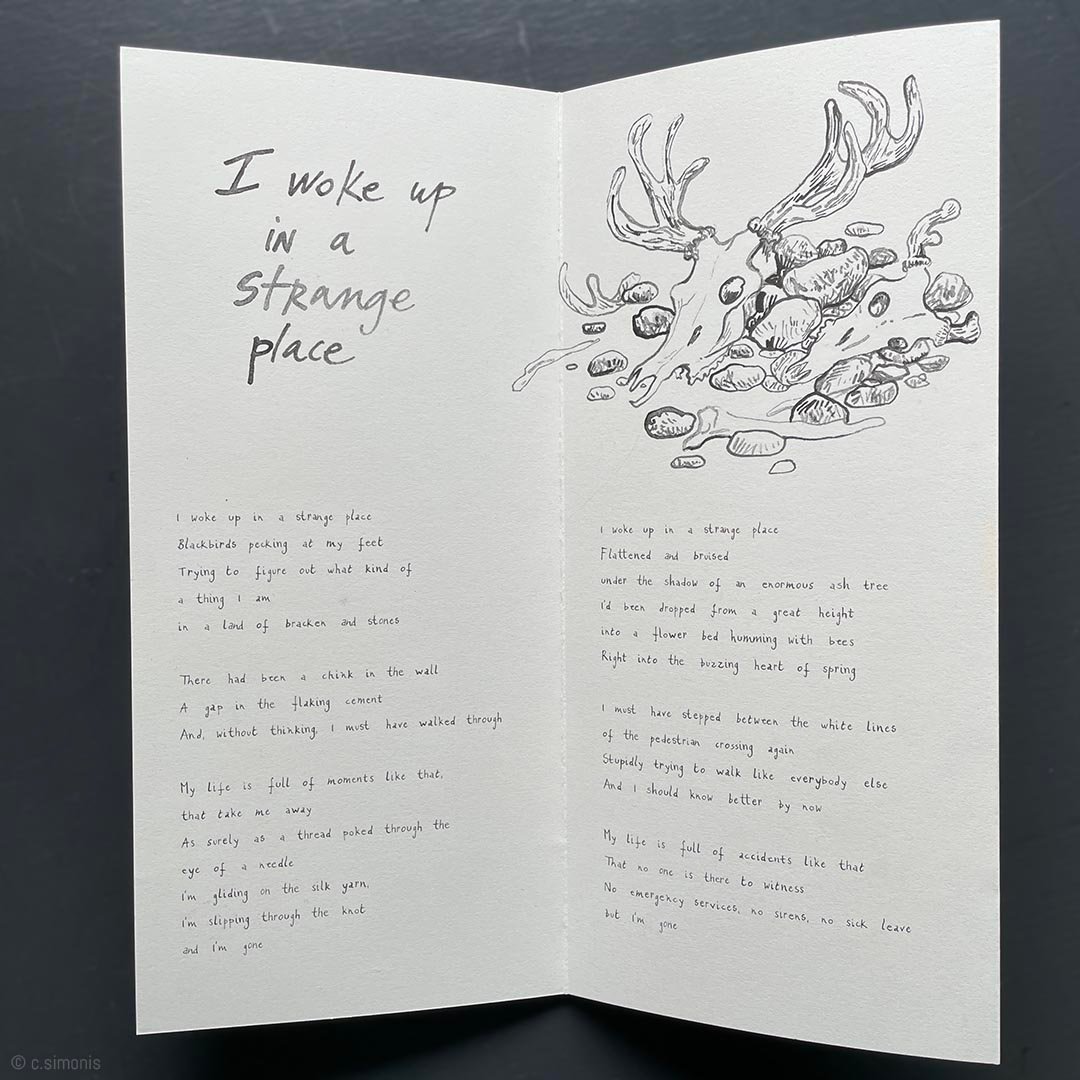 I woke up
in a
strange
place
I woke up in a strange place
Blackbirds pecking at my feet
Trying to figure out what kind of
a thing I am
in a land of bracken and stones
There had been a chink in the wall
A gap in the flaking cement
And, without thinking, I must have walked through
My life is full of moments like that,
that take me away
As surely as a thread poked through the
eye of a needle
i'm gliding on the silk yarn,
i'm slipping through the knot
and i'm gone
I woke up in a strange place
Flattened and bruised
under the shadow of an enormous ash tree
I'd been dropped from a great height
into a flower bed humming with bees
Right into the buzzing heart of spring
I must have stepped between the white lines
of the pedestrian crossing again
Stupidly trying to walk like everybody else
And I should know better by now
My life is full of accidents like that
That no one is there to witness
No emergency services, no sirens, no sick leave
but i'm gone
© c.simonis